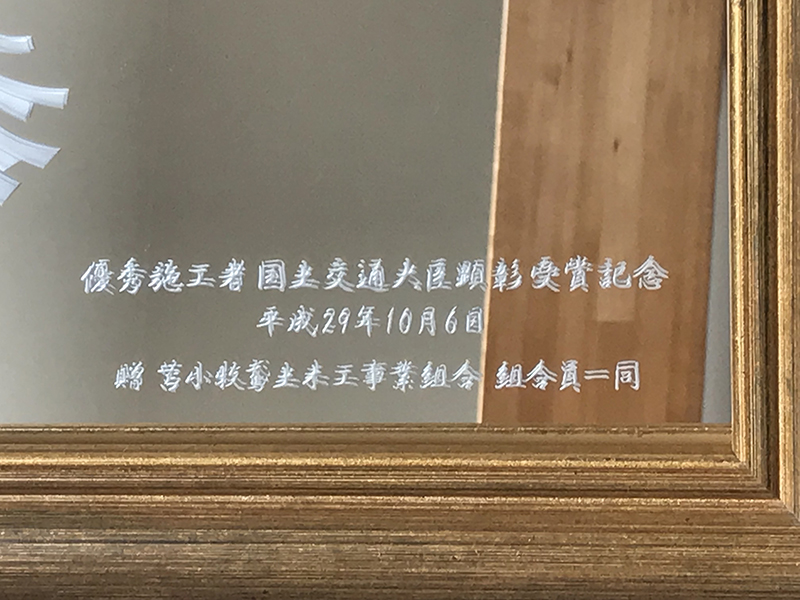 優秀施工者 国土交通大臣顕彰 受賞記念
平成29年10月6日
贈 苫小牧鳶土木工事業組合 組合員一同